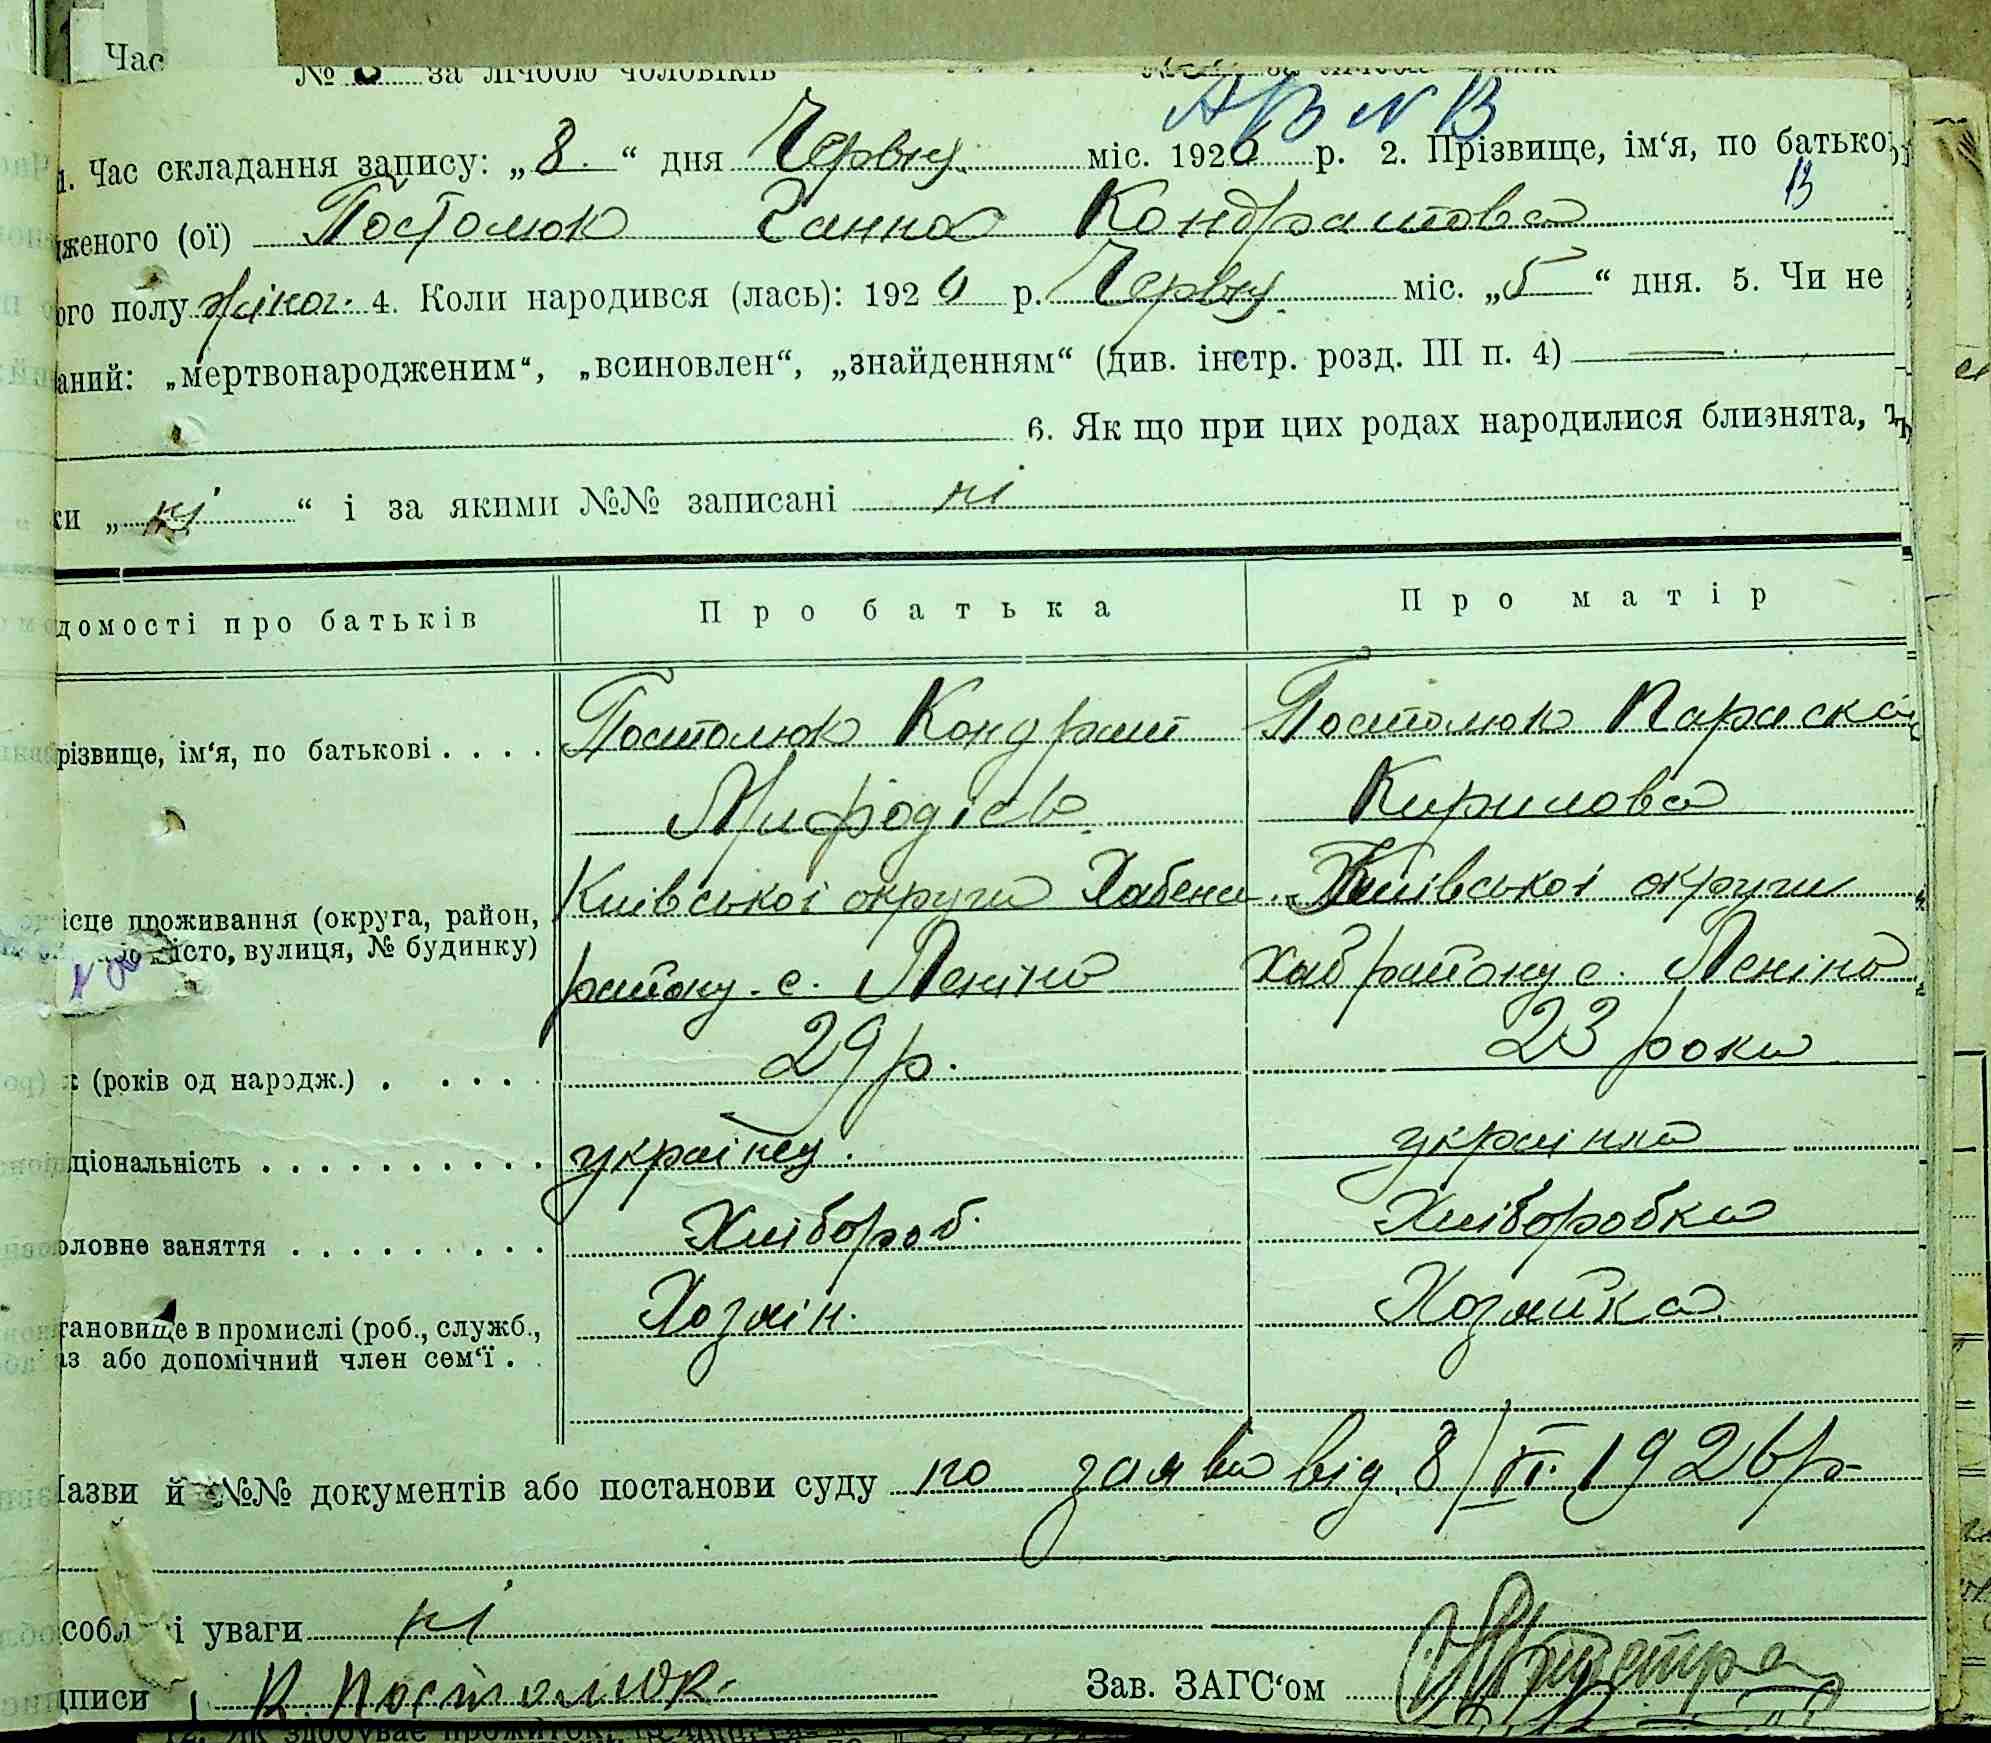 Час
№ за лічбою чоловіків
АВ № 13
1. Час складання запису: „8.“ дня Червня міс. 1926 р. 2. Прізвище, ім‘я, по батько
13
дженого (ої) Постолюк Ганна Кондратова
ого полу жіноч. 4. Коли народився (лась): 1926 р. Червня міс. „5“ дня. 5. Чи не
аний: „мертвонародженим“, „всиновлен“, „знайденням“ (див. інстр. розд. III п. 4)
6. Як що при цих родах народилися близнята,
ки „ні“ і за якими №№ записані ні
домості про батьків Про батька Про матір
різвище, ім‘я, по батькові . . . . Постолюк Кондрат Постолюк Параска
Мифодієв. Кирилова
Київської округи Хабенс. Київської округи
ісце проживання (округа, район,
місто, вулиця, № будинку) району. с. Леніна Хаб району с. Леніна
(років од народж.) . . . . . 29 р. 23 роки
ціональність . . . . . . . . . . українец. українка
оловне заняття . . . . . . . . . . Хлібороб. Хліборобка
тановище в промислі (роб., служб., Хозяін. Хозяйка
аз або допомічний член сем‘ї .
Назви й №№ документів або постанови суду по заяві від 8/VI. 1926 р
собливі уваги ні
дписи К. Постолюк. Зав. ЗАГС‘ом
12. Як здобуває прожиток: